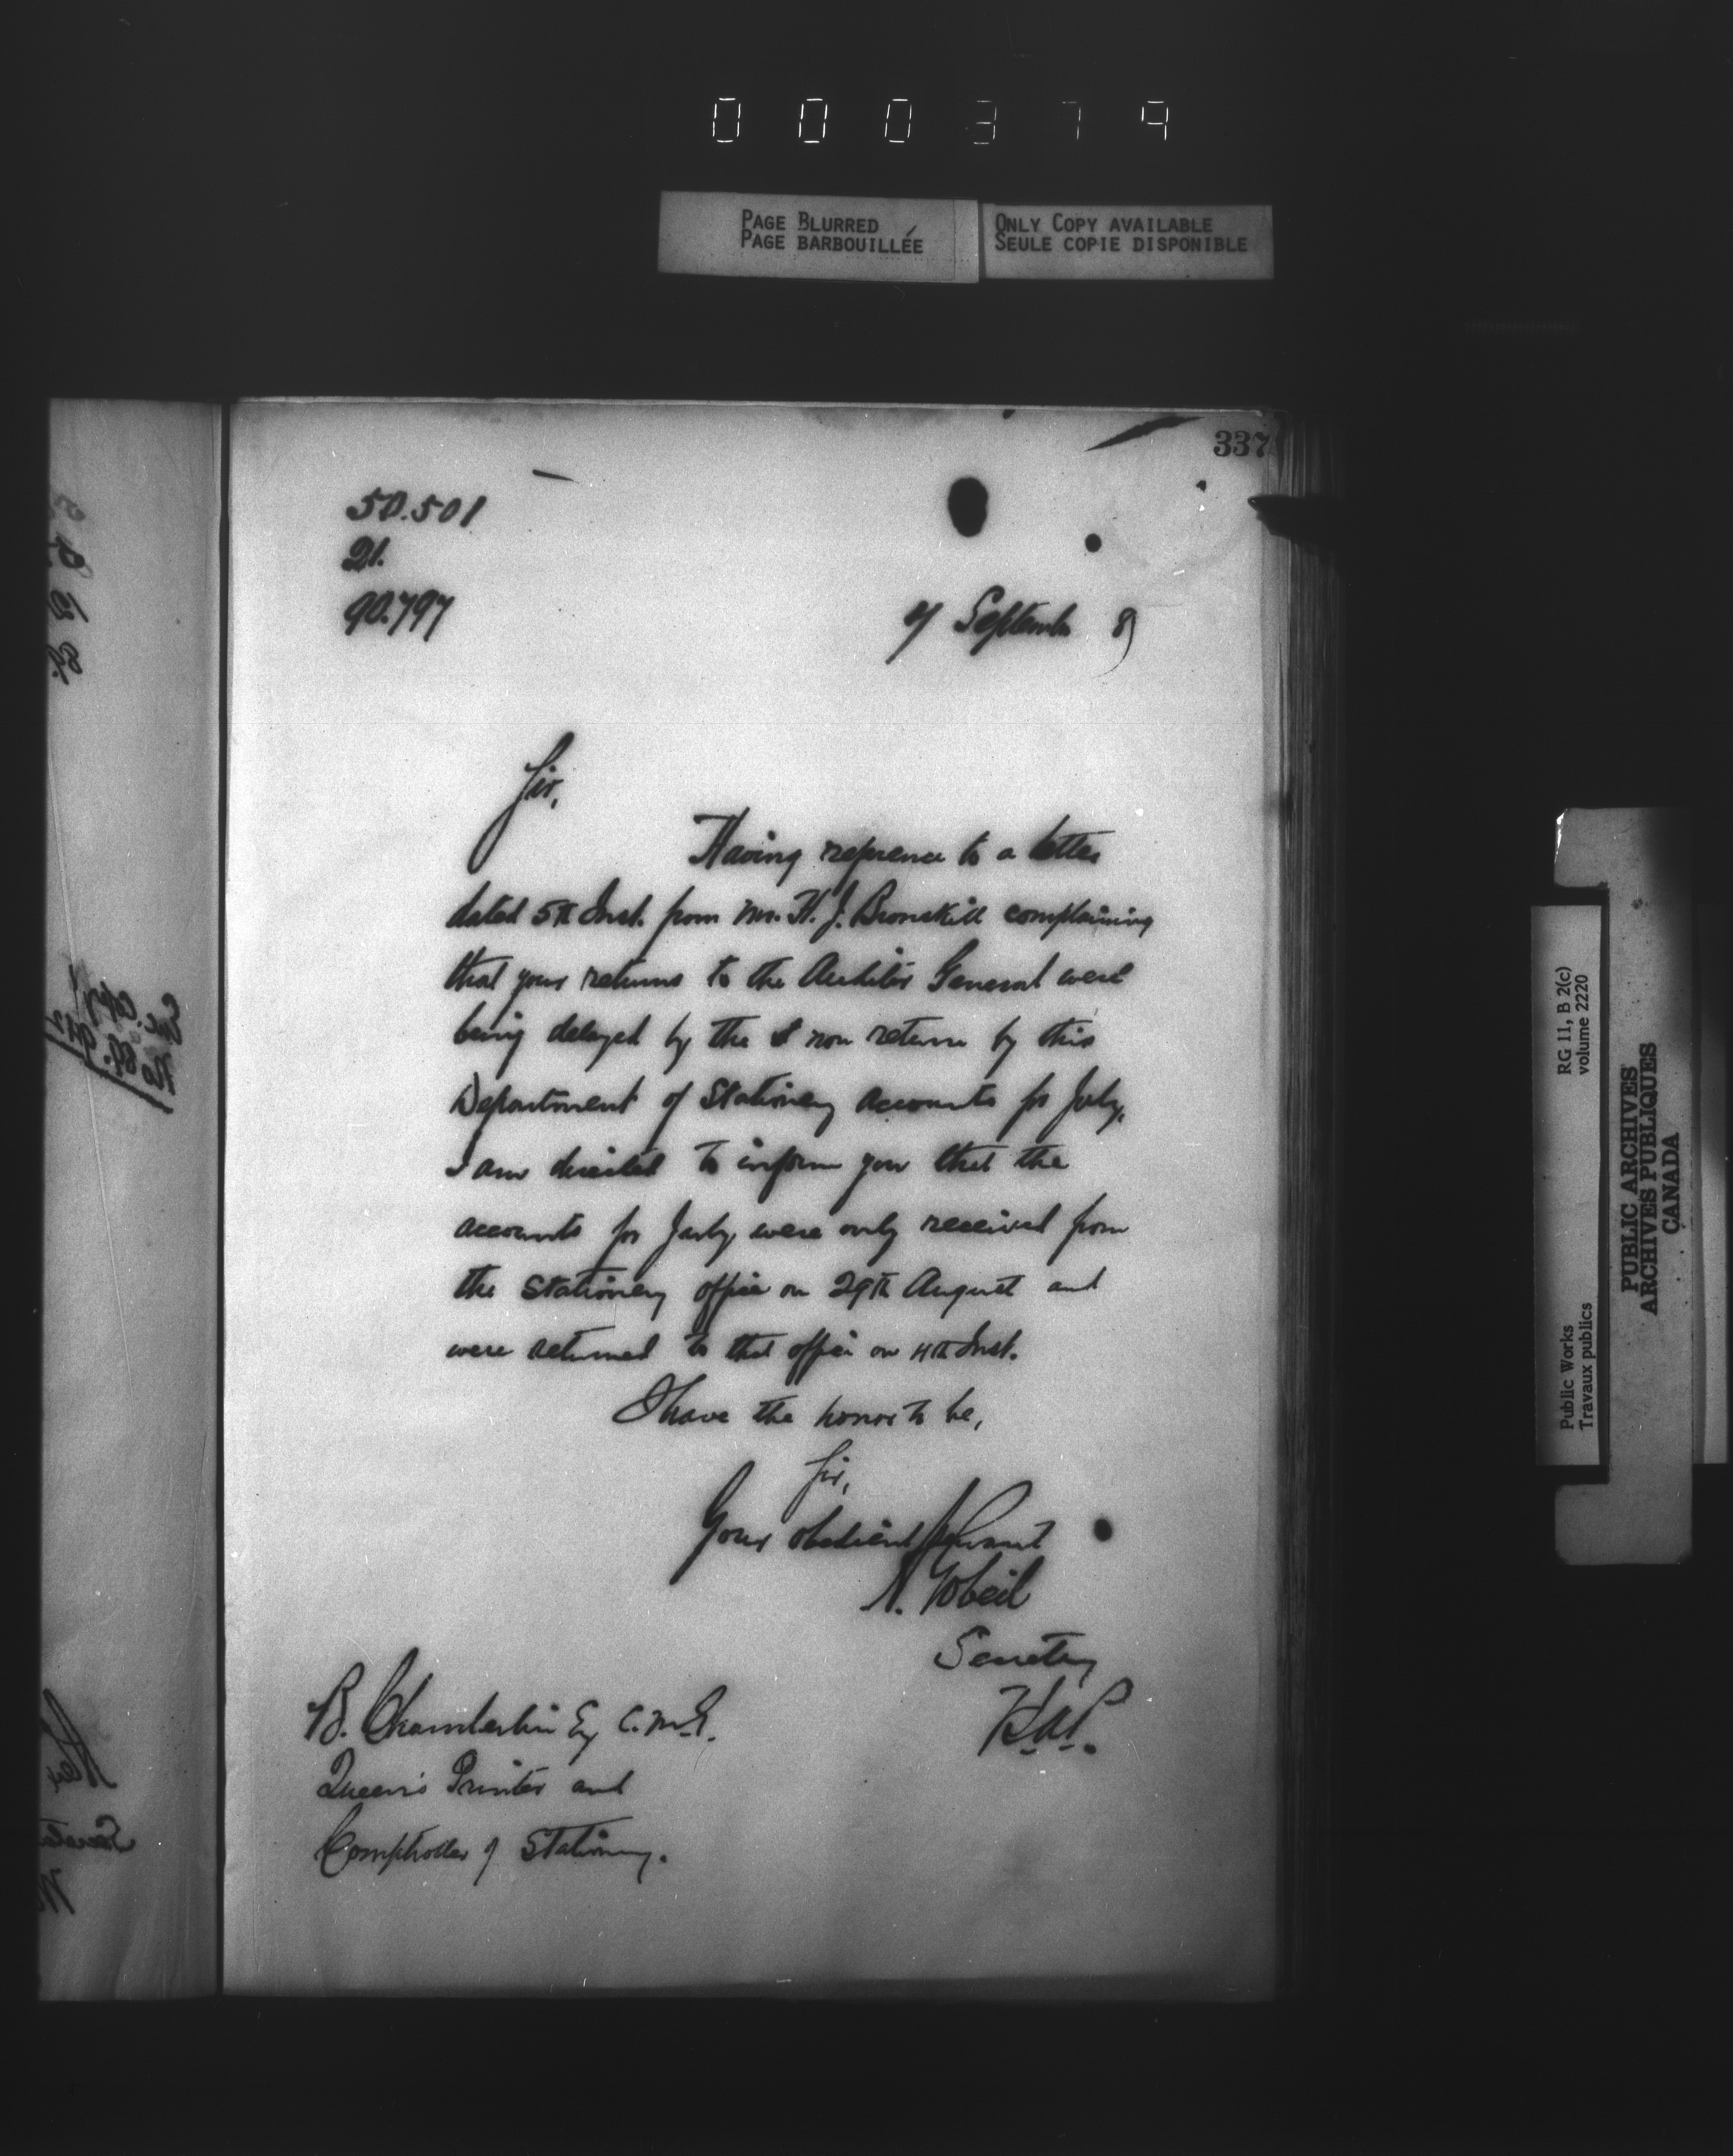 000379
PAGE BLURRED
PAGE BARBOUILLÉE
ONLY COPY AVAILABLE
SEULE COPIE DISPONIBLE
337
50.501
21.
90.797
7 September 87
Sir,
Having reference to a letter
dated 5th Inst. from Mr. H. J. Bronskill complaining
that your returns to the Auditor General were
being delayed by the non return by this
Department of Stationery accounts for July,
I am directed to inform you that the
accounts for July, were only received from
the Stationery office on 29th August and
were returned to that office on 4th Inst.
I have the honor to be,
Sir,
Your obedient Servant
A. Gobeil
Secretary
B. Chamberlin Esq C.M.G.
Queen's Printer and
Comptroller of Stationery.
RG 11, B 2(c)
volume 2220
Public Works
Travaux publics
PUBLIC ARCHIVES
ARCHIVES PUBLIQUES
CANADA